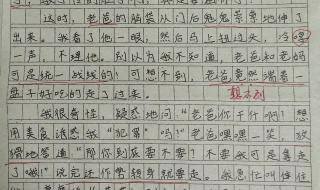 这时，老爸的脑袋从门后鬼鬼祟祟地伸了
出来。我看了他一眼，然后马上扭过头，冷哼
一声，不理他。别以为我不知道，老爸和老妈
可是统一战线的！可想不到，老爸竟然端着一
盘子好吃的走了过来。
想不到
我很奇怪，疑惑地问：“老爸你干什么？想
用美食诱惑我“犯罪”吗？”老爸嘿嘿一笑，放
滑地答道“那你到底要不要？不要我可是拿走
了哦！”说完还作势转身就要走。我急忙叫住住